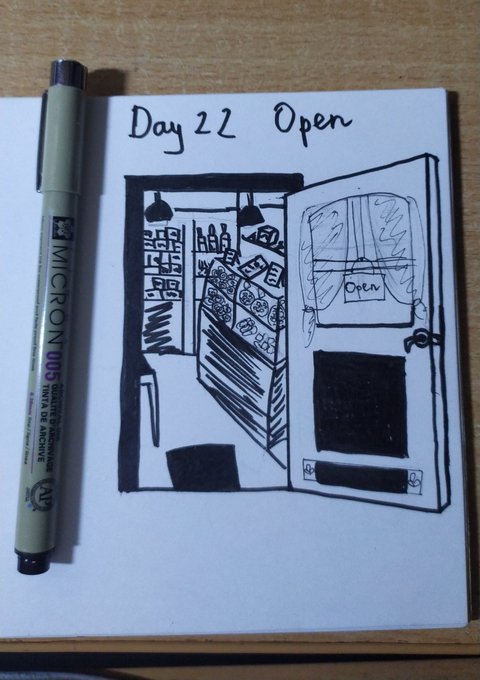 Day 22 Open
Open
MICRON 005
ARCHIVAL INK
QUALITÉ D'ARCHIVAGE
TINTA DE ARCHIVE
AP